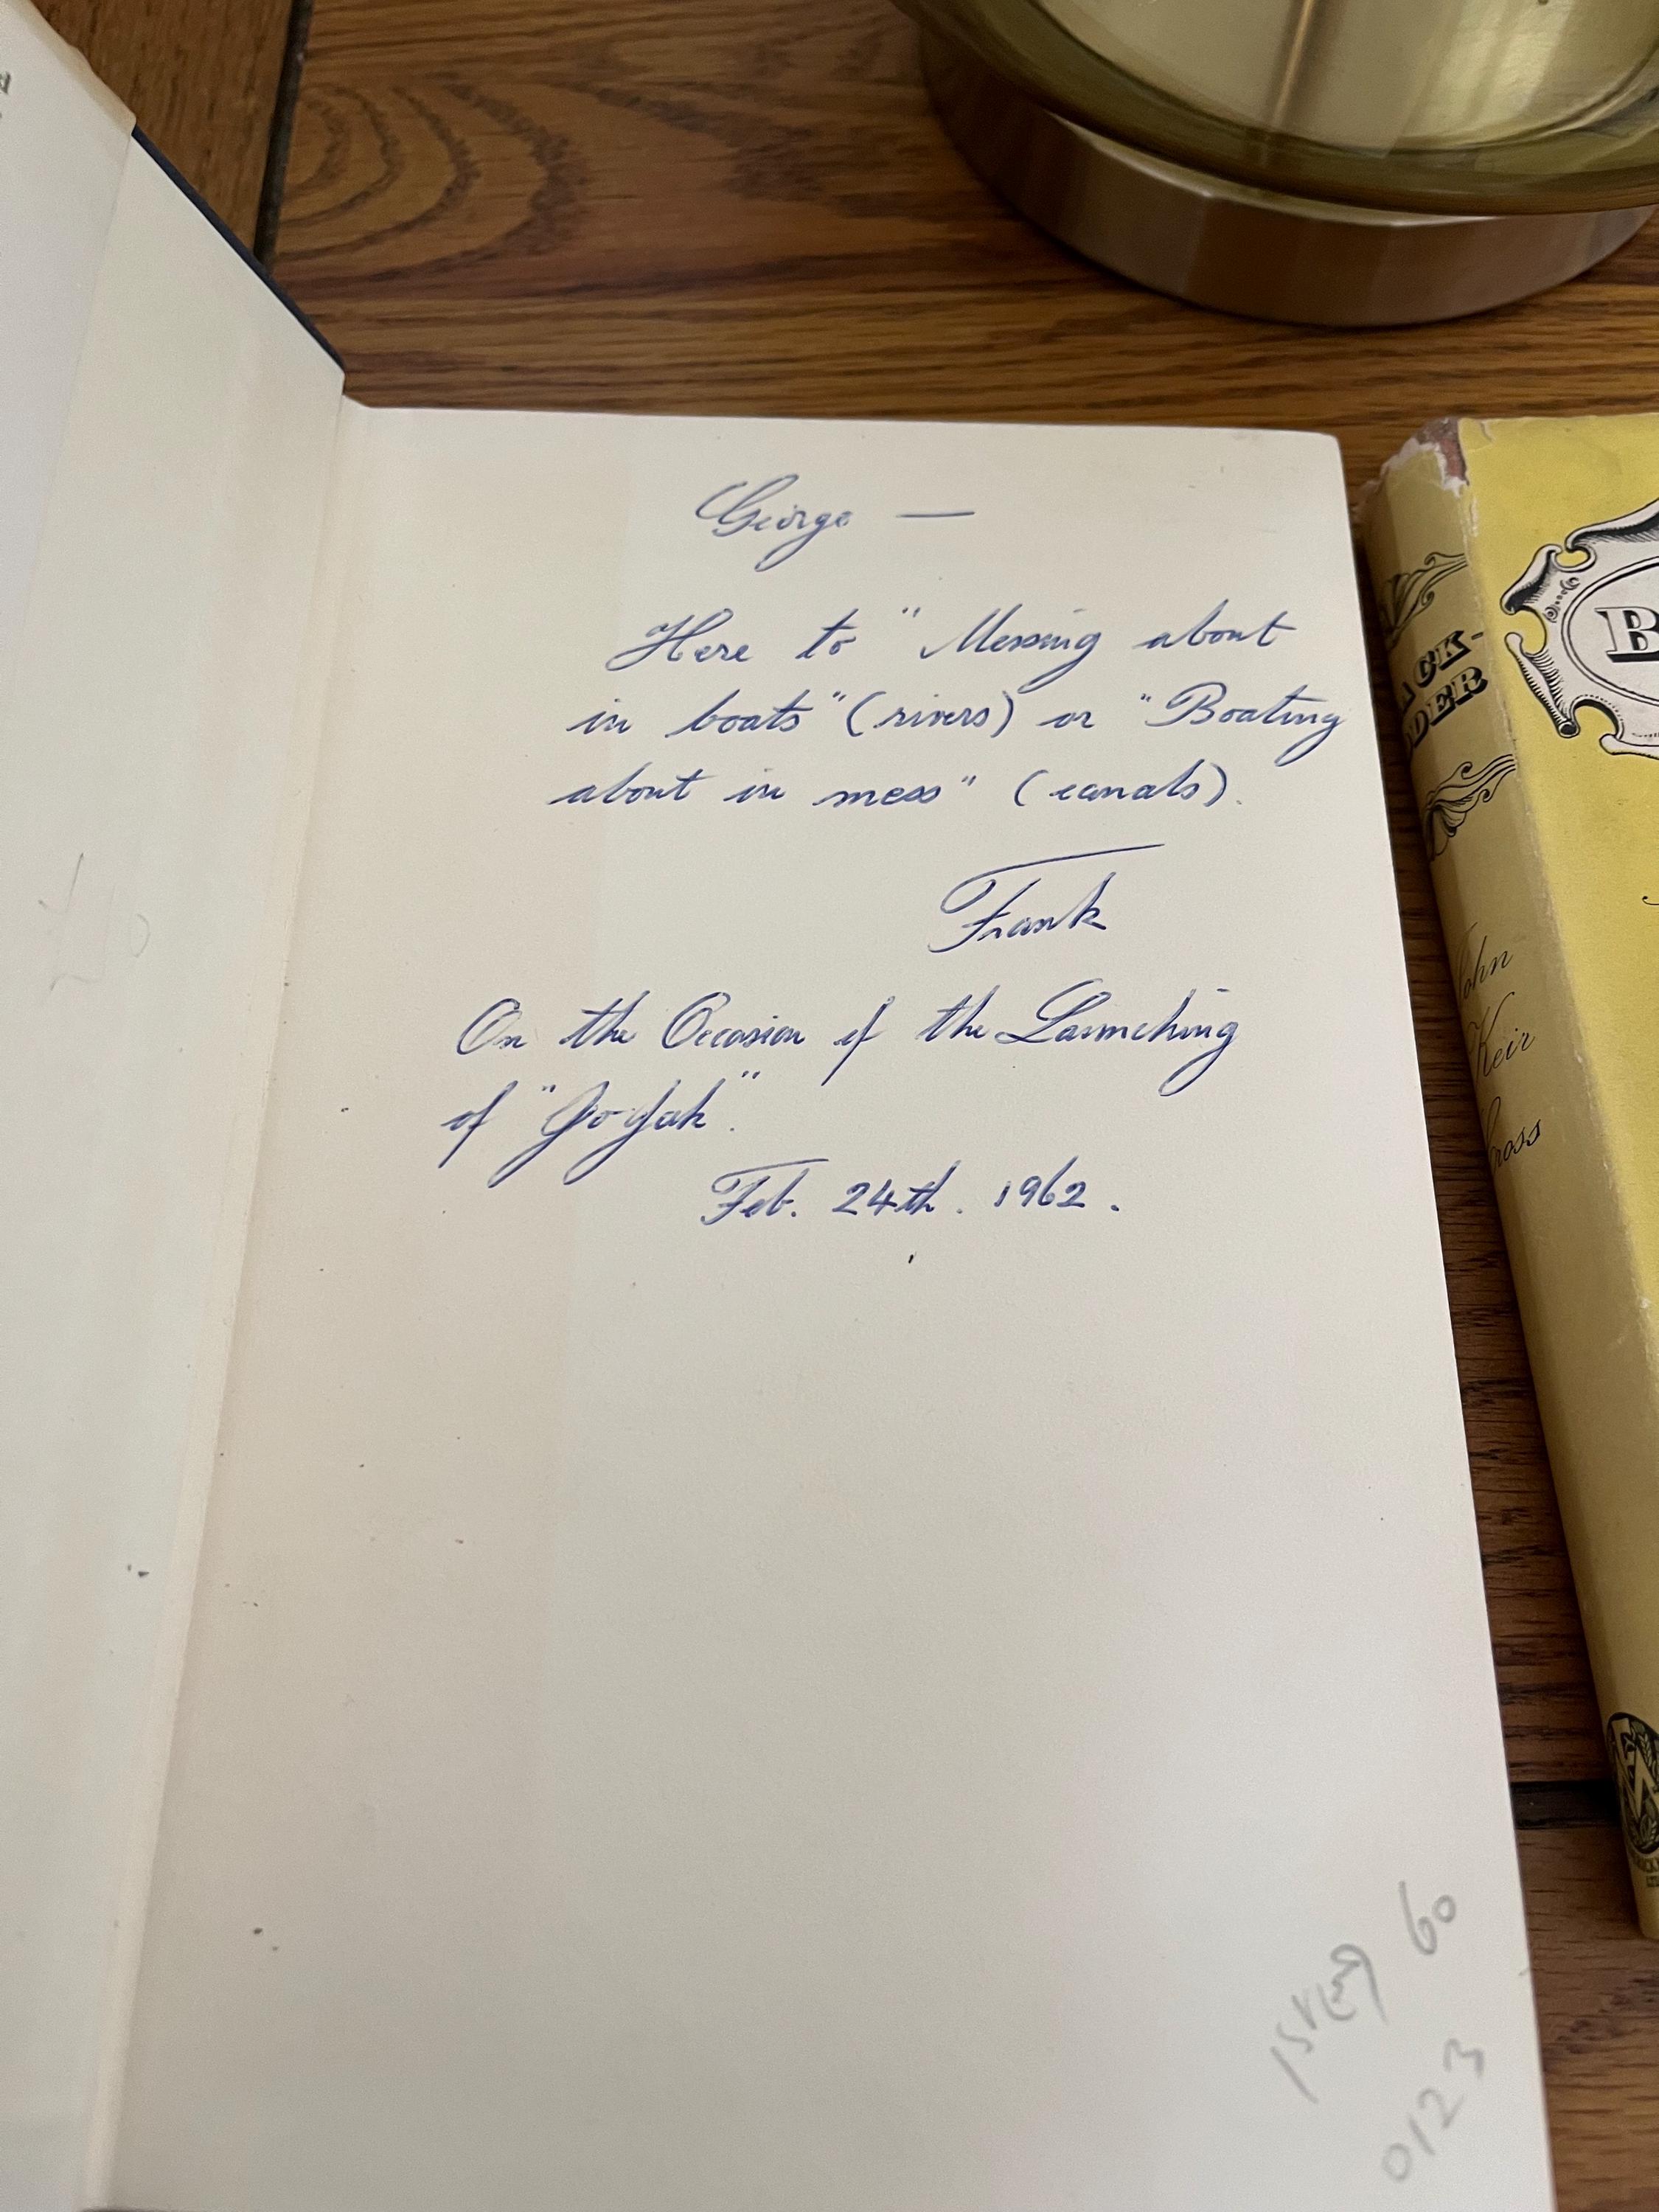 George —
Here to "Messing about
in boats" (rivers) or "Boating
about in mess" (canals).
Frank
On the Occasion of the Launching
of "Jo-Jak".
Feb. 24th. 1962.
60
0123
John
Keir